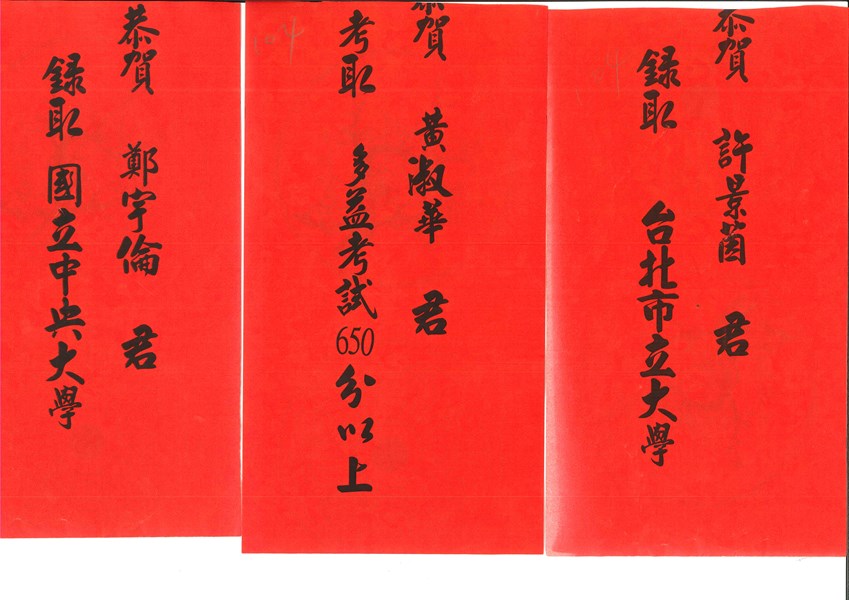 恭賀 許景茵 君
録取 台北市立大學
恭賀 黃淑華 君
考取 多益考試650分以上
恭賀 鄭宇倫 君
録取 國立中央大學